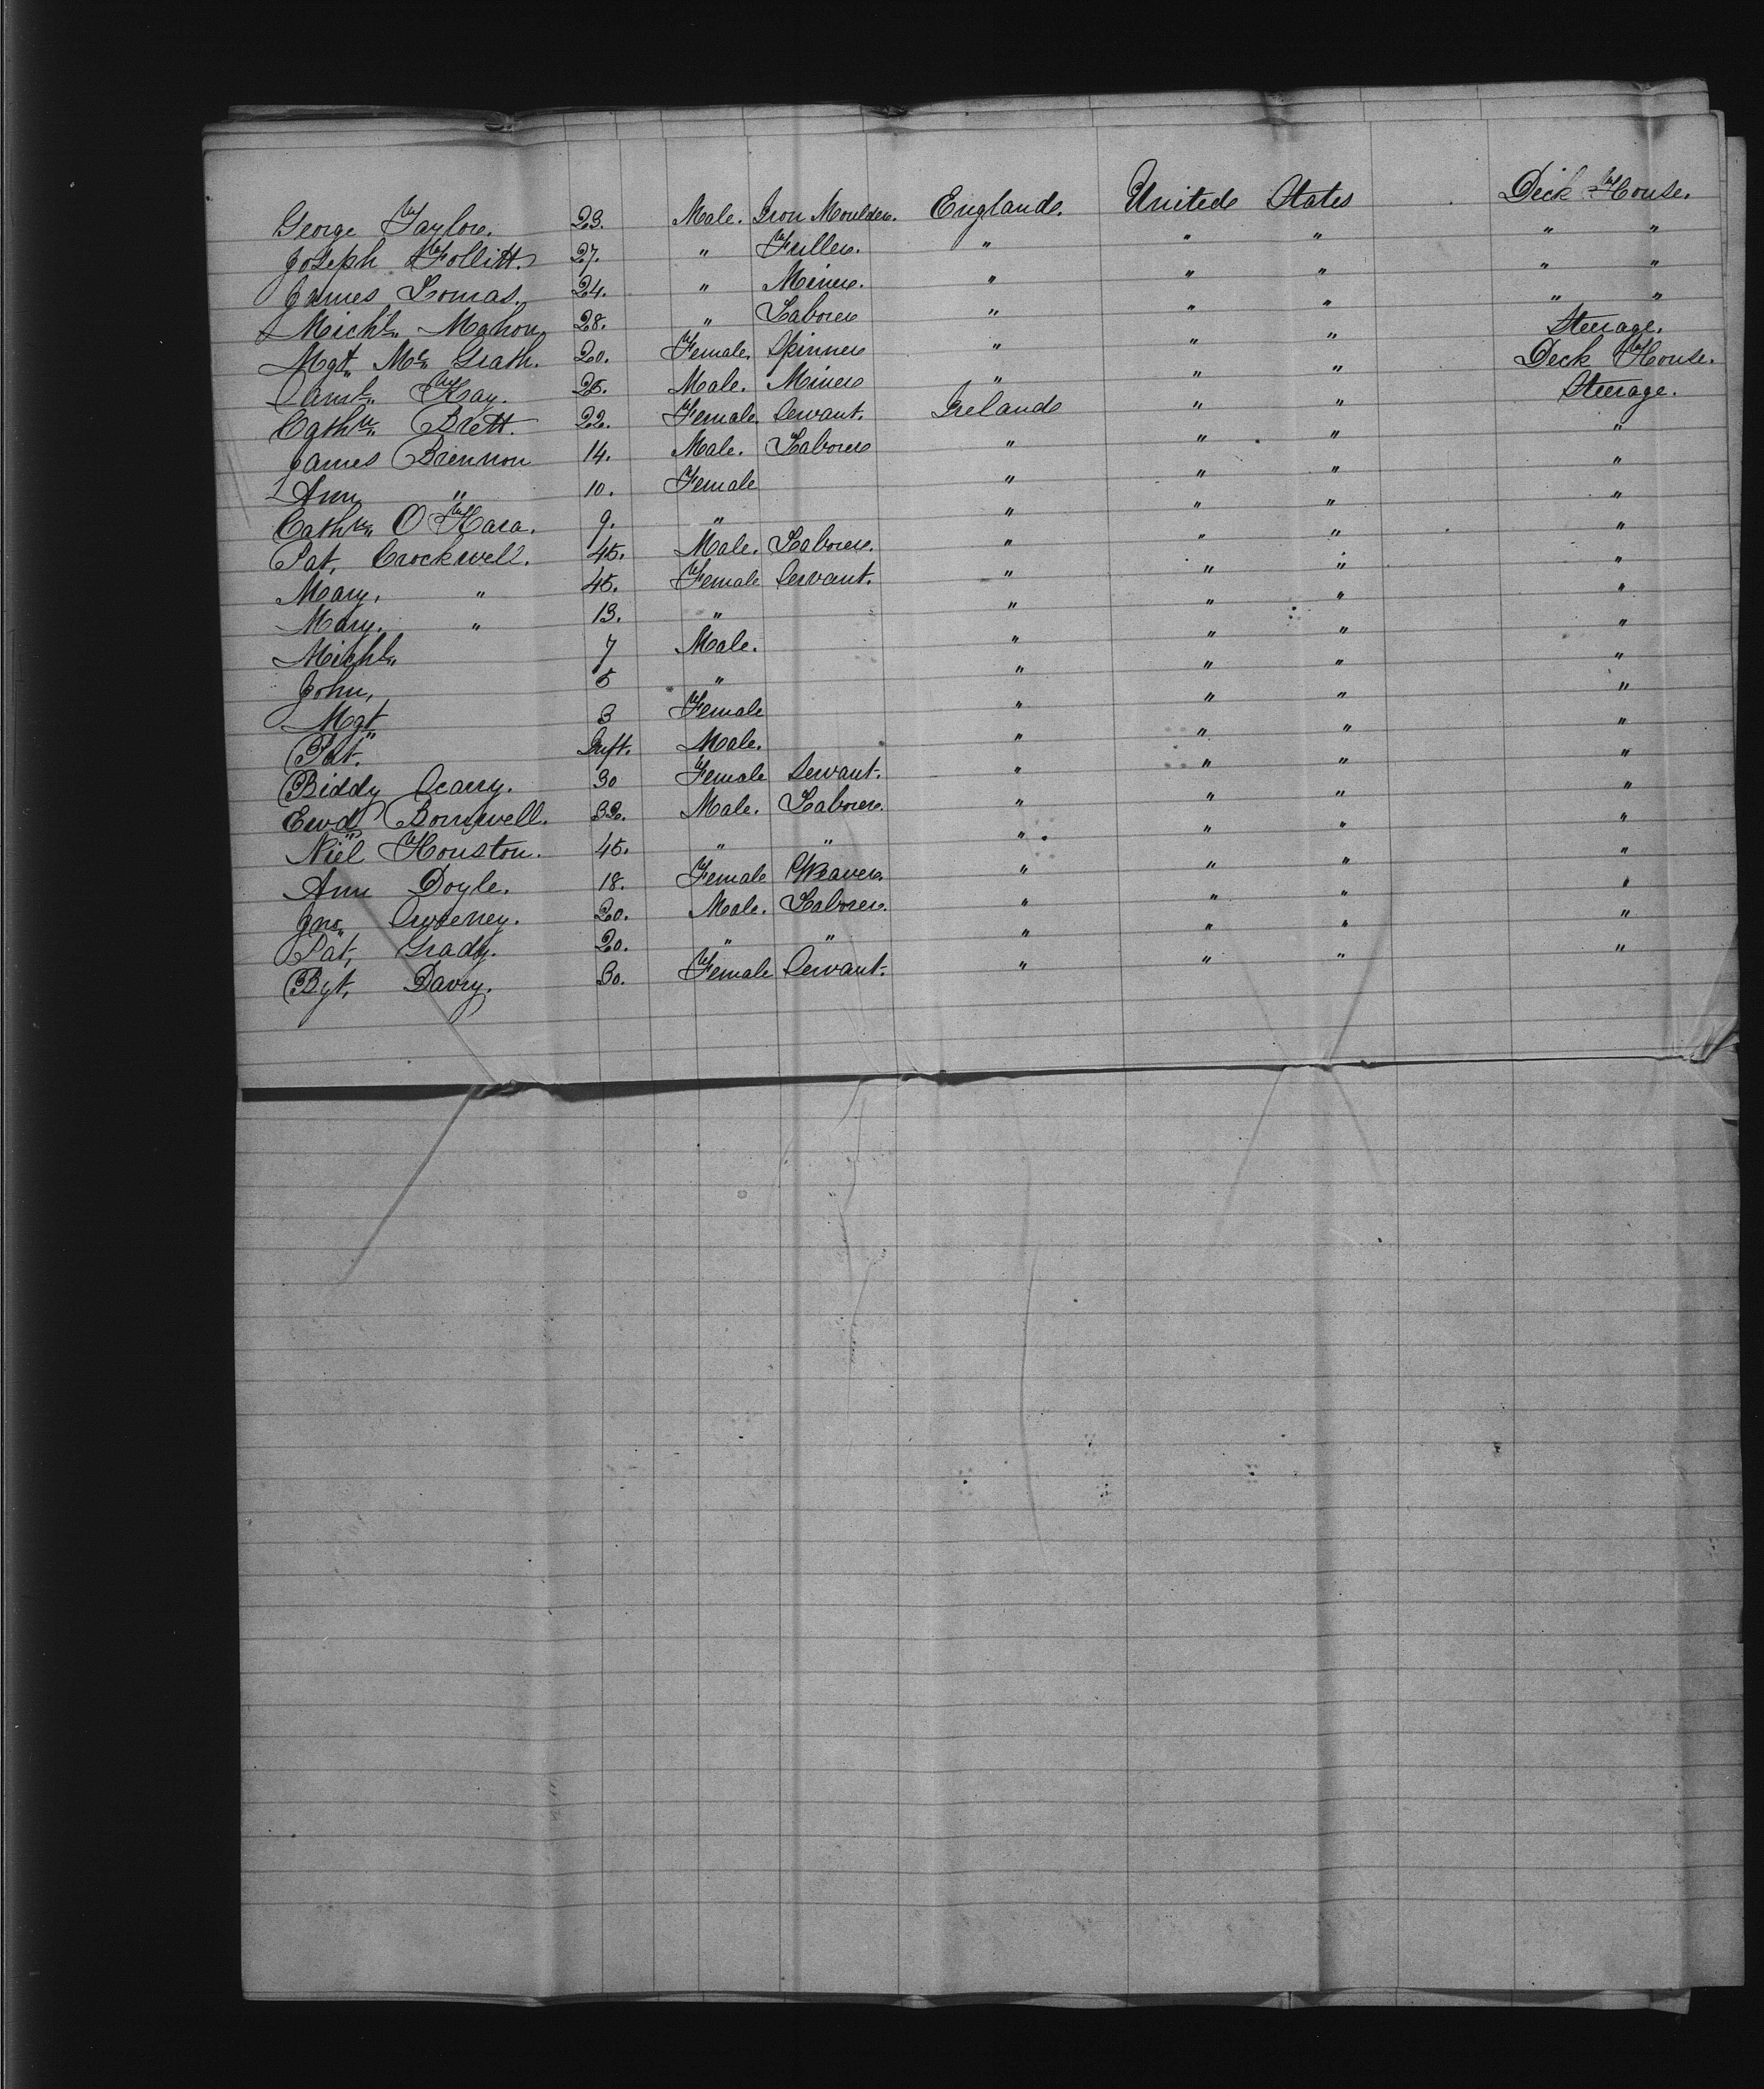 George Taylor. 23. Male. Iron Moulder. England. United States Deck House.
Joseph Follitt. 27. " Fuller. " " " " "
James Lomas. 24. " Miner. " " " " "
Michl. Mahon 28. " Laborer " " " " "
Mgt. Mc. Grath. 20. Female. Spinner " " " Steerage.
Saml. Kay. 25. Male. Miner " " " Deck House.
Cathn. Brett. 22. Female. Servant. Ireland " " Steerage.
James Brennon 14. Male. Laborer " " " "
Ann " 10. Female " " " "
Cathn. O Hara. 9. " " " " "
Pat, Crockwell. 45. Male. Laborer. " " " "
Mary, " 45. Female Servant. " " " "
Mary. " 13. " " " " "
Michl. 7 Male. " " " "
John, 5 " " " " "
Mgt 3 Female " " " "
Pat. Inft. Male. " " " "
Biddy Scarry. 30 Female Servant. " " " "
Ewd. 33. Male. Laborer. " " " "
Niel Houston. 45. " " " " " "
Ann Doyle. 18. Female Weaver. " " " "
Jno. Sweeney. 20. Male. Laborer. " " " "
Pat, Grady. 20. " " " " " "
Bgt, Davry. 30. Female Servant. " " " "